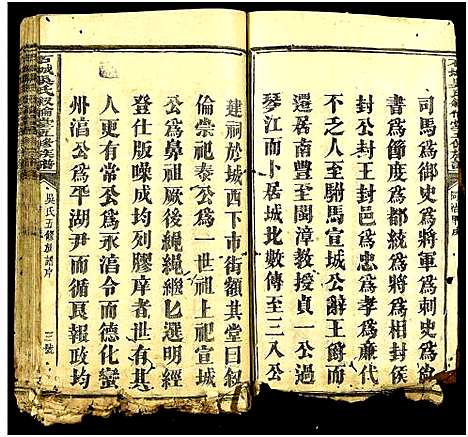 司馬為御史為將軍為刺史為
書為節度為都統為將為相封侯
封公封王封邑為忠為孝為廉代
不乏人至駙馬宣城公辭王爵而
還居南豐至閩漳教授貞一公攜
琴江而居城北數傳至三入公
建祠於城西下市街額其堂曰敘
倫崇祀泰公為一世祖上祀宣城
公為鼻祖厥後繩繩匕選明經
登仕版噪成均列膠庠者世有其
人更有公為永滀令而德化蠻
州滀公為平湖尹而循良報政均
石城吳氏敘倫堂五修族譜
吳氏五修族譜序
三號